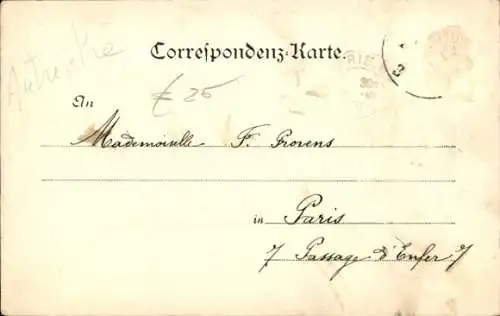 Correspondenz-Karte.
Autriche
£ 25
An
Mademoiselle F. Provens
in Paris
7 Passage d'Enfer 7